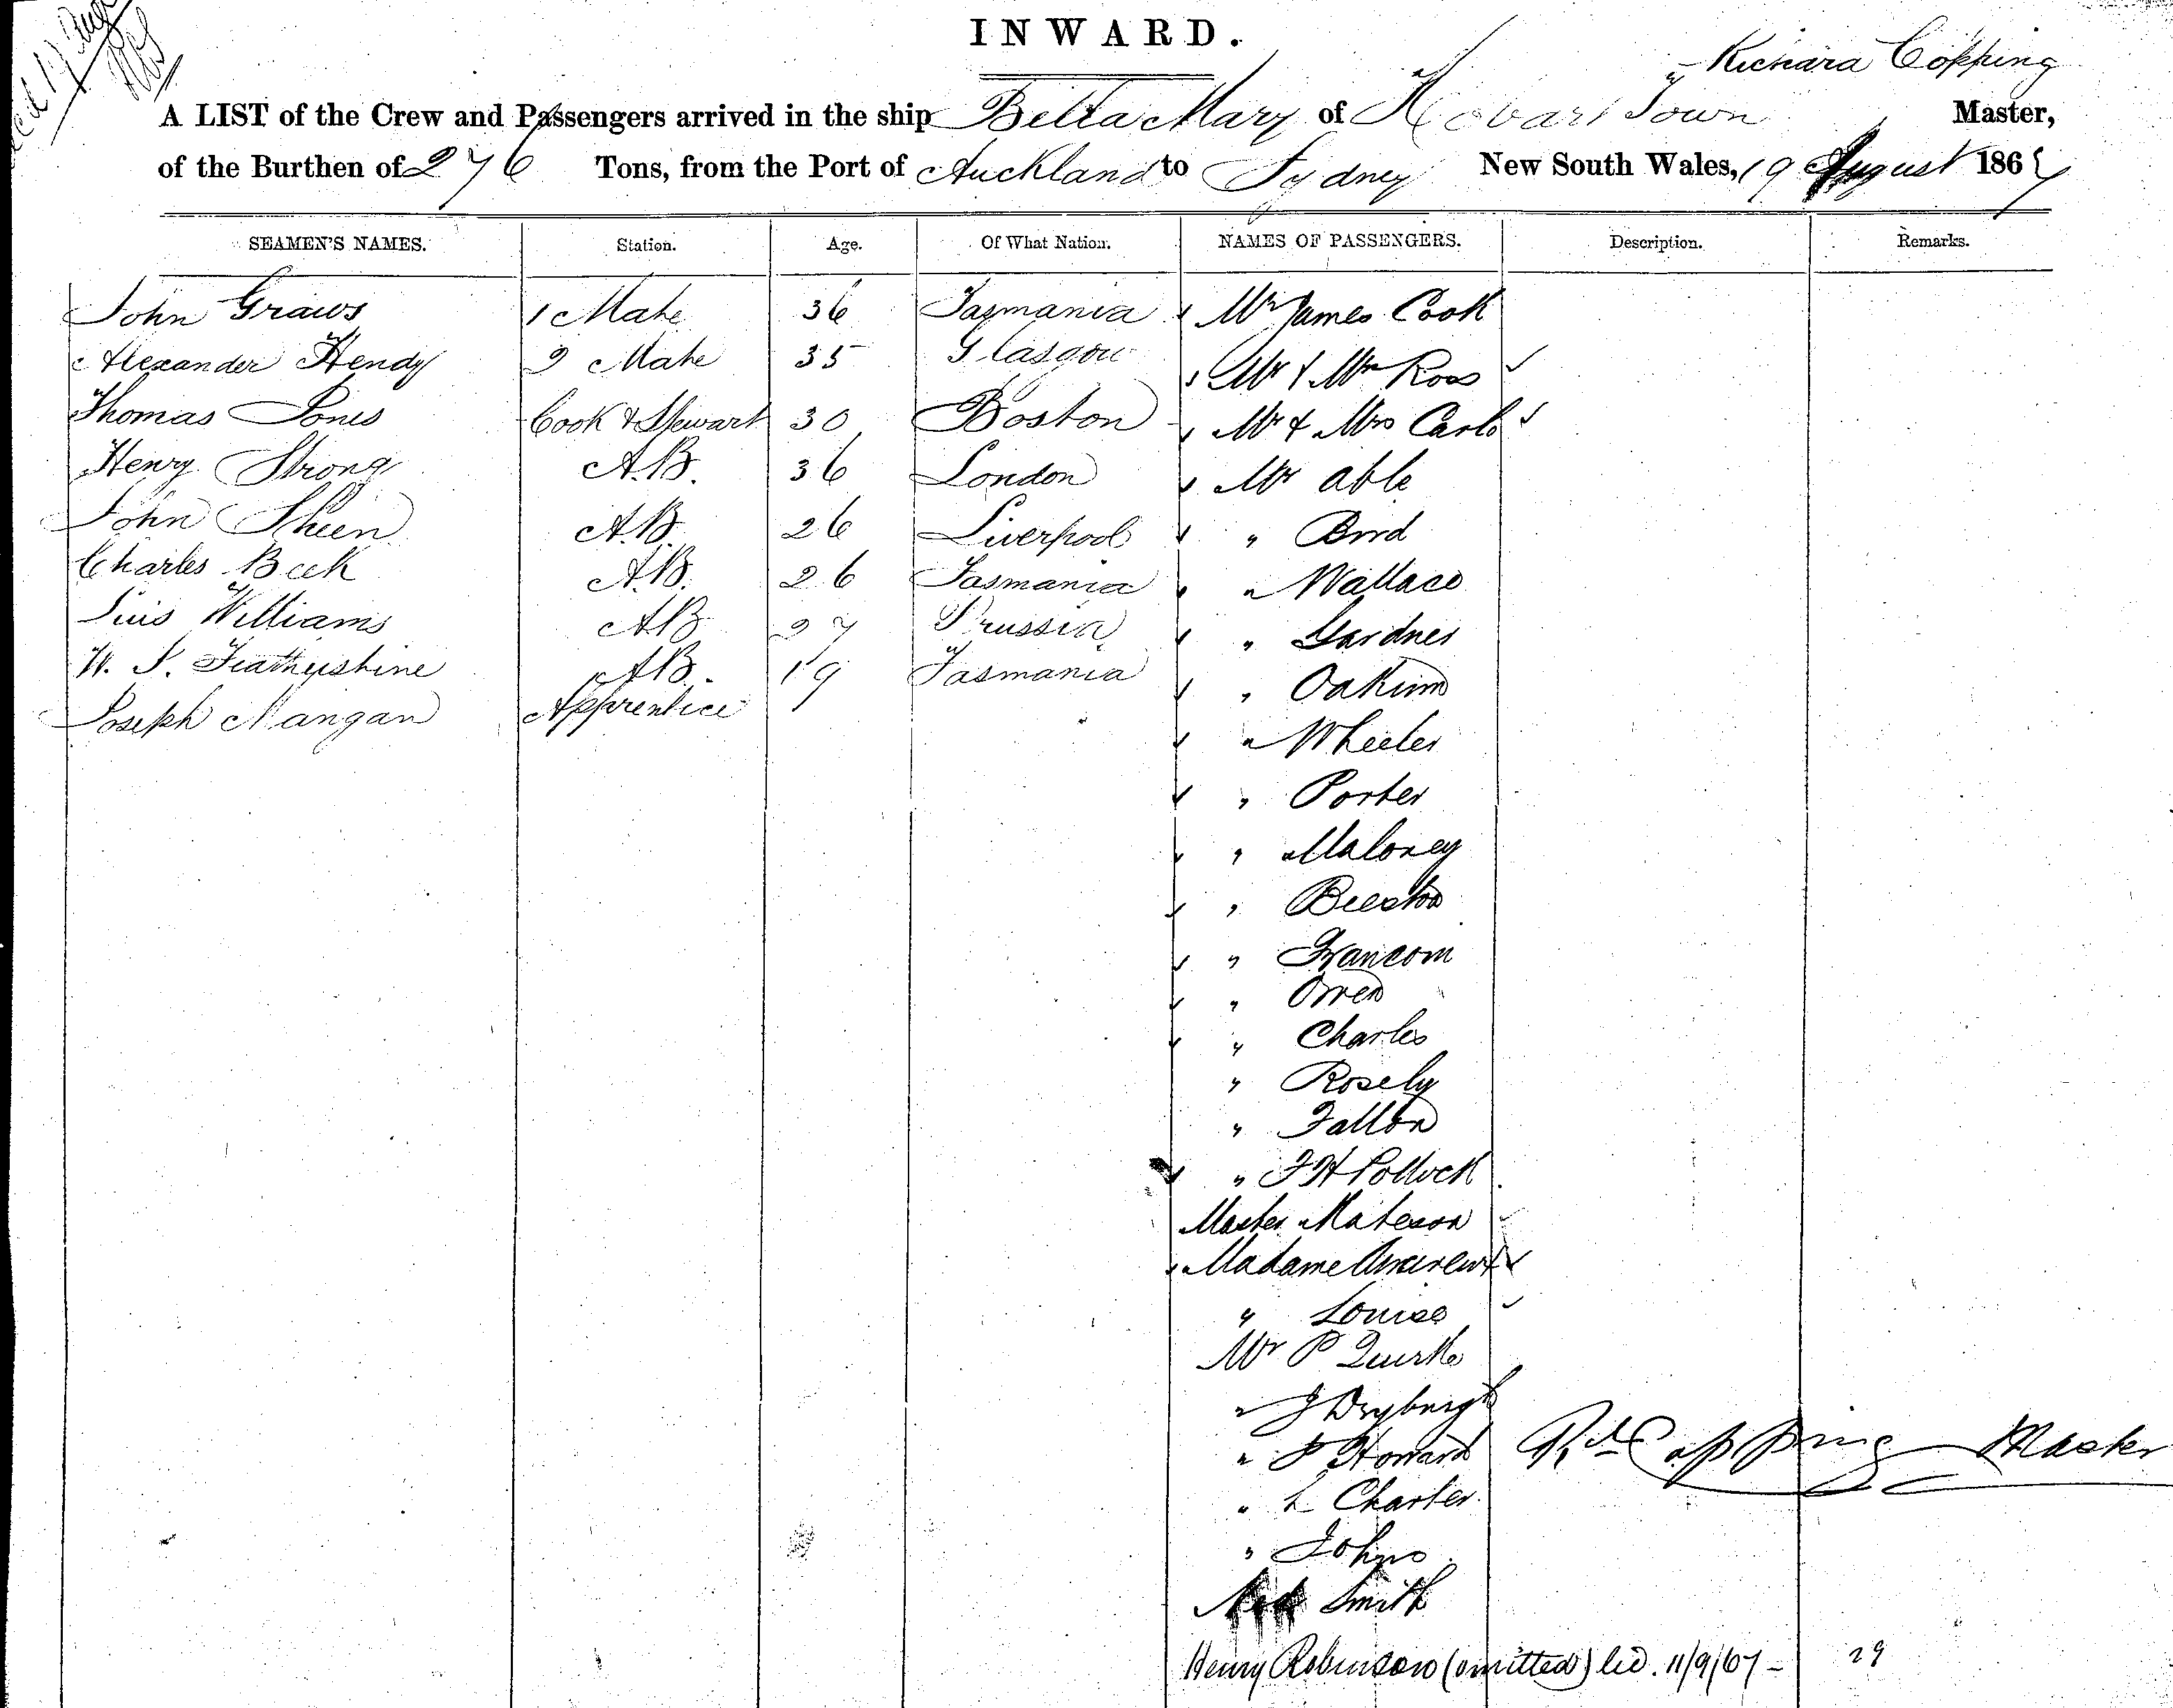 INWARD.
Richard Copping
A LIST of the Crew and Passengers arrived in the ship Bella Mary of Hobart Town Master,
of the Burthen of 276 Tons, from the Port of Auckland to Sydney New South Wales, 19 August 1867
SEAMEN'S NAMES. Station. Age. Of What Nation. NAMES OF PASSENGERS. Description. Remarks.
John Graws 1 Mate 36 Tasmania Mr James Cook
Alexander Hendy 2 Mate 35 Glasgow Mr & Mrs Ross
Thomas Jones Cook & Stewart 30 Boston Mr & Mrs Carlo
Henry Strong A.B. 36 London Mr Able
John Sheen A.B. 26 Liverpool " Bird
Charles Beck A.B. 26 Tasmania " Wallace
Luis Williams AB 27 Prussia " Gardner
W. J. AB. 19 Tasmania " Oakum
Joseph Mangan Apprentice " Wheeler
" Porter
" Maloney
" Beeston
" Francom
" Owen
" Charles
" Rosely
" Fallon
" F H Pollock
Master Mateson
Madame
" Louise
Mr P Quirke
" J Dryburgh
" J Howard Rd Copping Master
" L Charter
" Johns
Smith
Henry Robinson (omitted) lid. 11/9/67 - 29